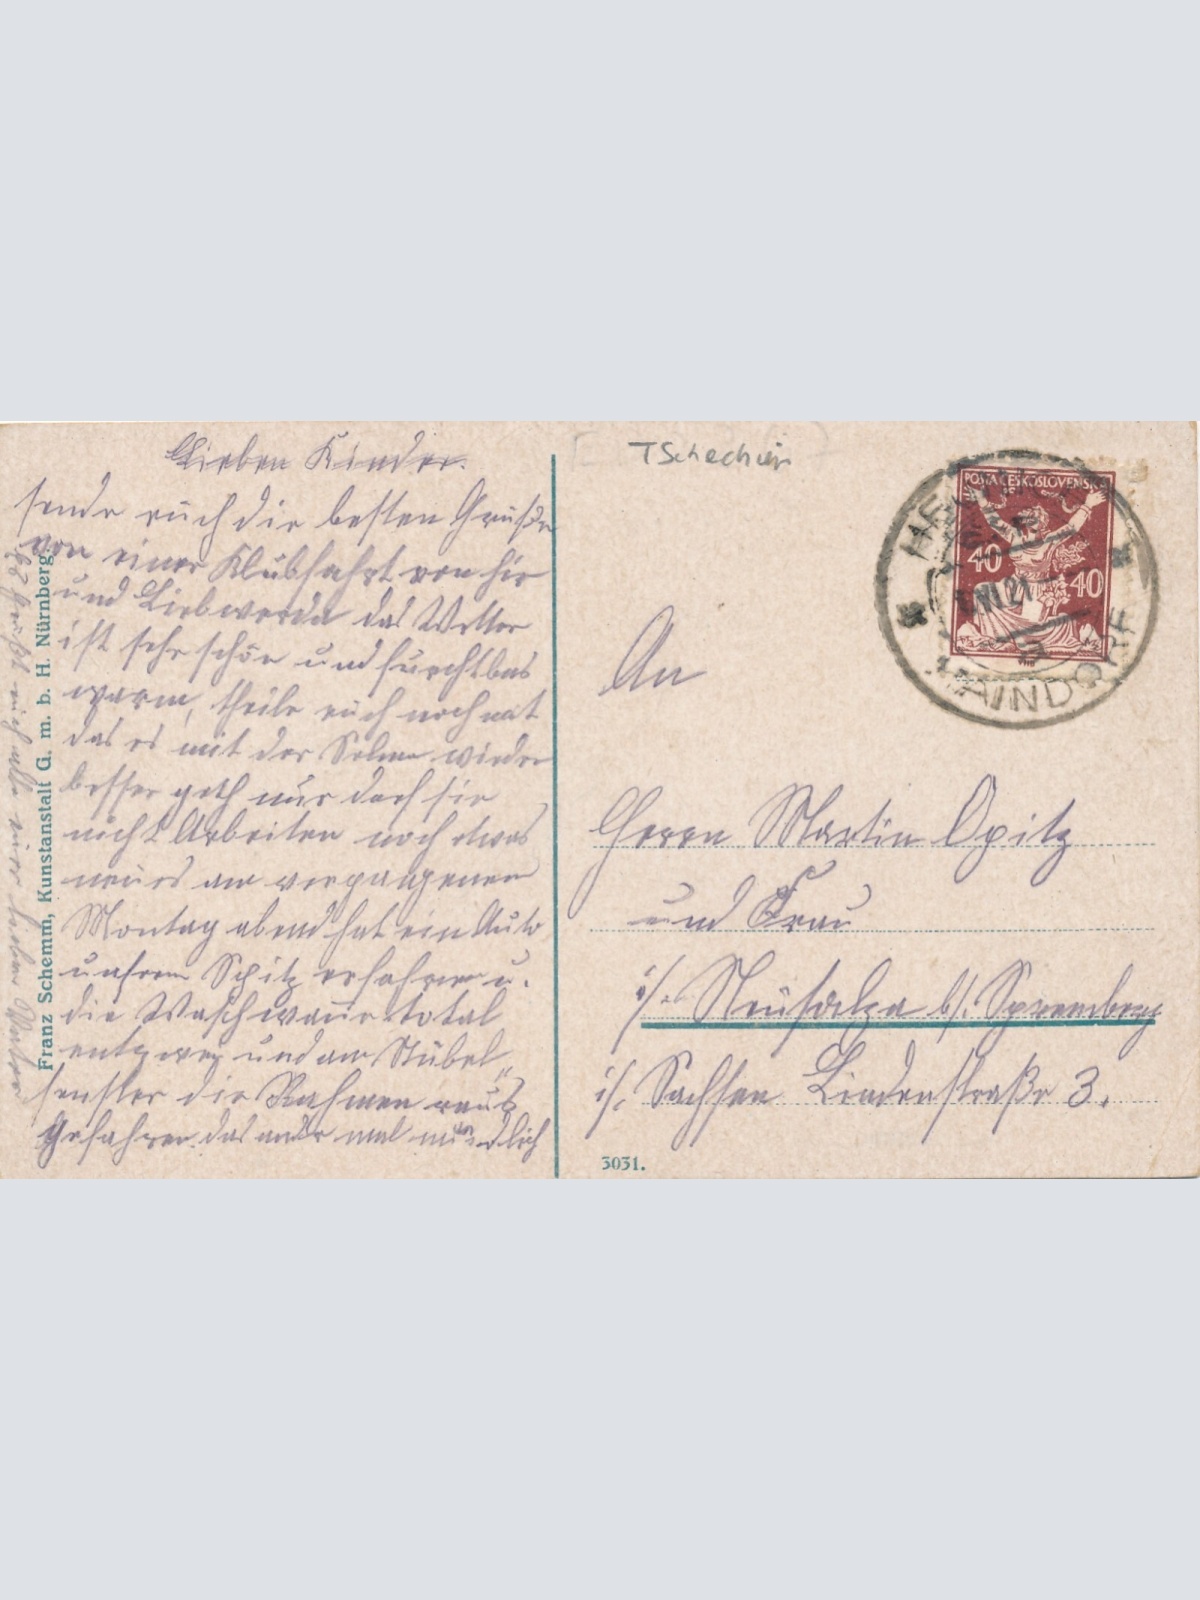 Lieben Kinder.
sende euch die besten Grüße
von einer Klubfahrt von hir
und Liebwerda das Wetter
ist sehr schön und furchtbar
warm, theile euch noch mit
das es mit der wieder
besser geth nur darf sie
nicht Arbeiten noch etwas
neues am vergangenen
Montag abend hat ein Auto
unsren Spitz erfahren u.
die Waschwanne total
entzwei und am Stübel„
fenster die Rahmen raus
gefahren. das andre mal mündlich
Es Grüßt euch alle euer lieber
Franz Schemm, Kunstanstalt G. m. b. H. Nürnberg.
TSchechien
POŠTA ČESKOSLOVENSKÁ
40
40
HAINDORF
21
An
Herrn Martin Opitz
und Frau
i/. Neusalza b/. Spremberg
i/. Sachsen Lindenstraße 3.
3031.